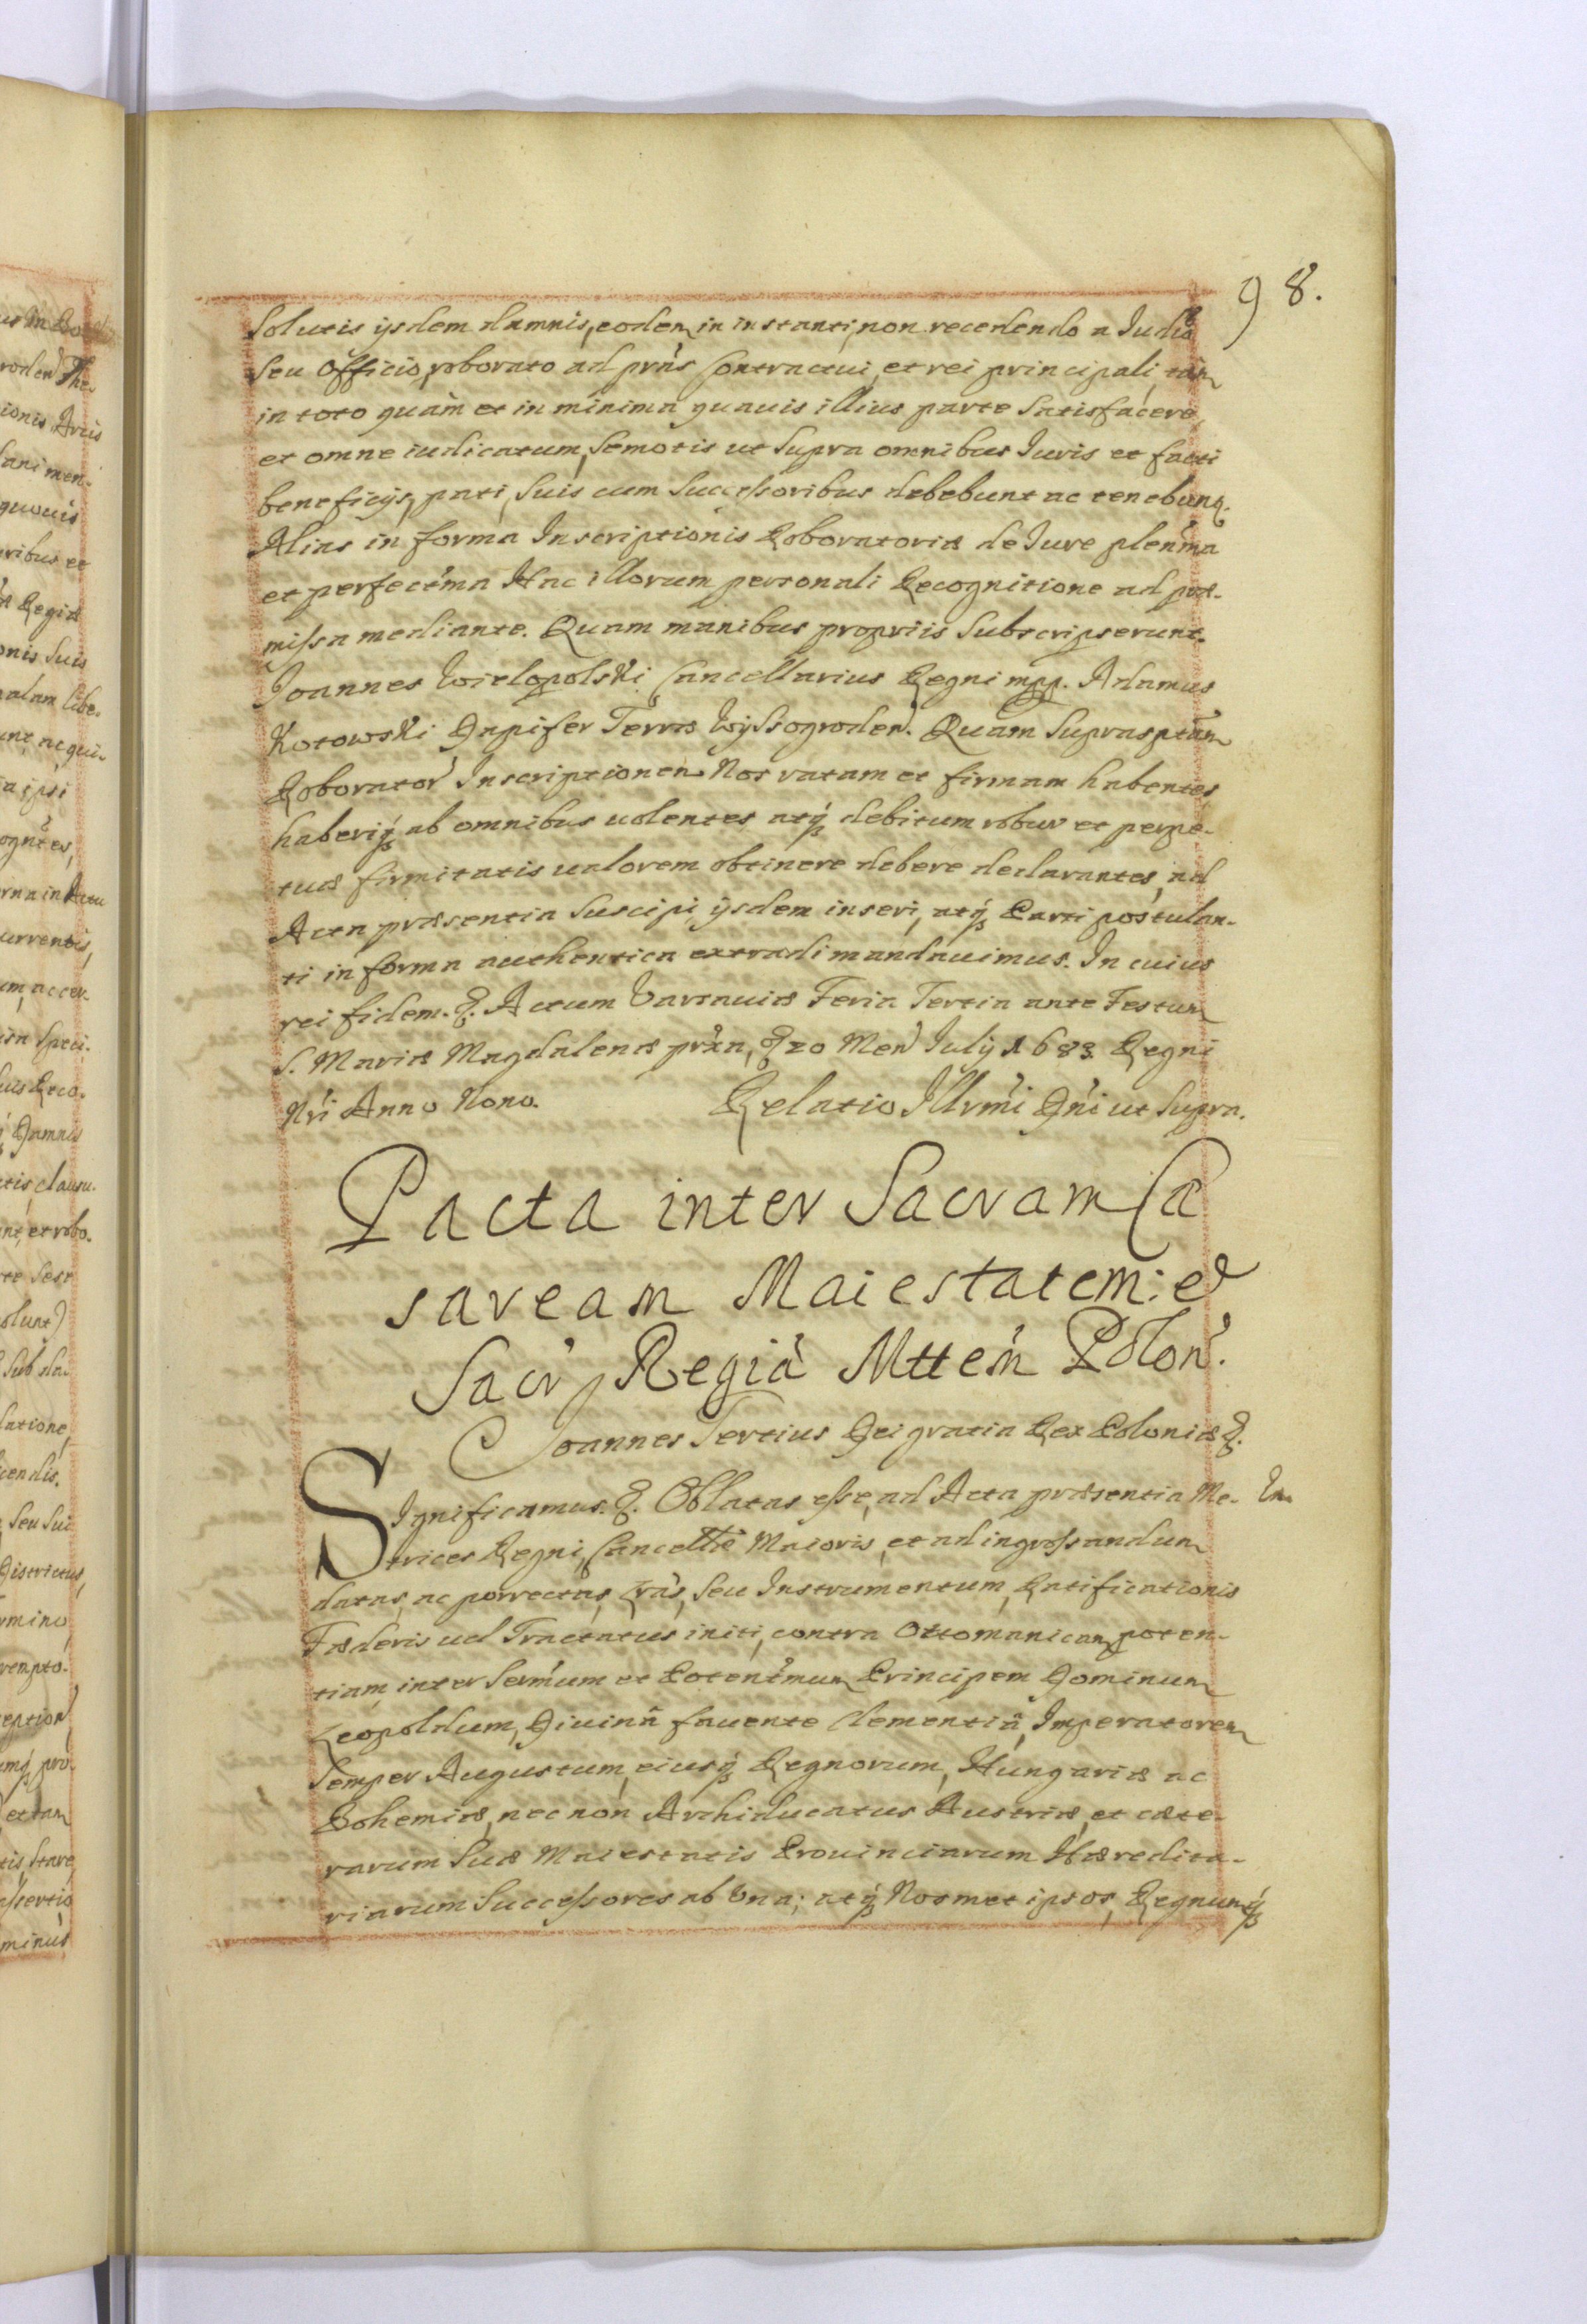 98.
Solutis ijsdem damnis, eodem in instanti, non recedendo a Iudio
Seu Officio, roborato ad prńs Contractui, et rei principali, tàm
in toto quàm et in minima quauis illius parte Satisfacere,
et omne iudicatum, Semotis ut Supra omnibus Iuris et facti
beneficijs, pati, Suis cum Successoribus debebunt ac tenebunt.
Alias in forma Inscriptionis Roboratoriæ de Iure plen̄ma
et perfect̄ma Hac illorum personali Recognitione ad præ-
missa mediante. Quam manibus propriis Subscripserunt.
Joannes Wielopolski Cancellarius Regni mpp. Adamus
Kotowski Dapifer Terræ Wyssogroden̓. Quam Suprasptam
Roborator̓ Inscriptionem Nos ratam et firmam habentes
haberiq́; ab omnibus uolentes atq́; debitum robur et perpe-
tuæ firmitatis ualorem obtinere debere declarantes, ad
Acta præsentia Suscipi, ijsdem inseri, atq́; Parti postulan-
ti in forma authentica extradi mandauimus. In cuius
rei fidem. &. Actum Varsauiæ Feria Tertia ante Festum
S. Mariæ Magdalenæ prx̄a, & 20 Men̓ Julij 1683 Regni
Nr̓i Anno Nono. Relatio Illrm̓i Dn̓i ut Supra.
Pacta inter Sacram Cæ
saream Maiestatem: et
Sacr̓ Regia̓ Mttem̓ Polon̓.
Joannes Tertius Dei gratia Rex Poloniæ &.
Significamus. &. Oblatas esse, ad Acta præsentia Me-
trices Regni, Cancellr̄æ Maioris, et ad ingrossandum
datas, ac porrectas, Lrás, Seu Instrumentum, Ratificationis
Fæderis uel Tractatus initi, contra Ottomanicam poten-
tiam, inter Serm̓um et Potent̄mum Principem Dominum
Leopoldum, Diuinâ fauente clementiâ, Imperatorem
Semper Augustum, eiusq́; Regnorum, Hungariæ ac
Bohemiæ, nec non Archiducatus Austriæ, et cæte-
rarum Suæ Maiestatis Prouinciarum Hæredita-
riarum Successores ab Vna; atq́; Nosmet ipsos, Regnumq́;